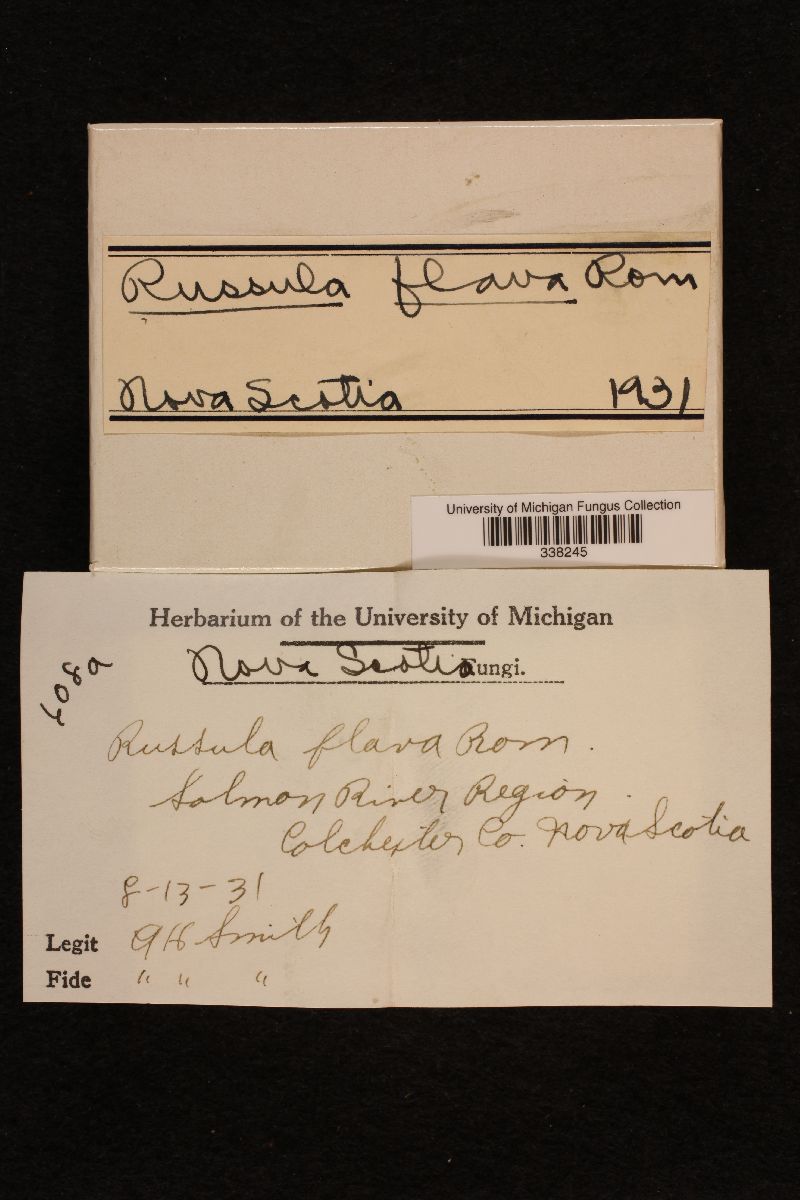 Russula flava Rom
Nova Scotia 1931
University of Michigan Fungus Collection
338245
Herbarium of the University of Michigan
Nova Scotia Fungi.
408a
Russula flava Rom.
Salmon River Region.
Colchester Co. Nova Scotia
8-13-31
Legit AH Smith
Fide " " "